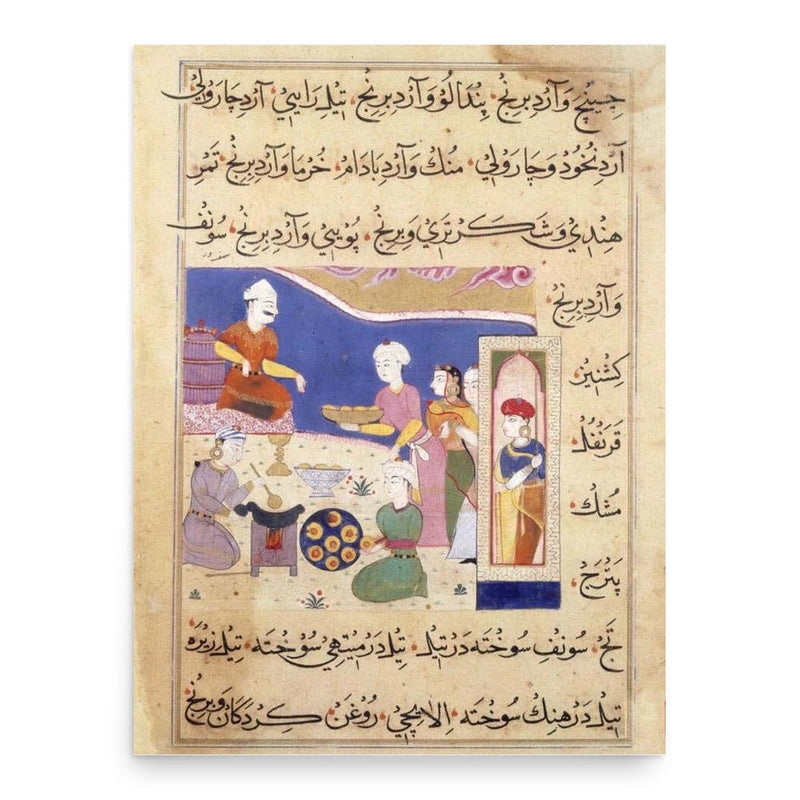 جینچ وآرد برنج پندالو وآرد برنج تیل رایی آرد چارولی
آرد نخود و چارولی منک وآرد بادام خرما وآرد برنج تمر
هندی و شکر تری و برنج پویی وآرد برنج سونف
وآرد برنج
کشنیز
قرنفل
مشک
پترج
تج سونف سوخته در تیل تیل در میتهی سوخته تیل زیره
تیل در هنک سوخته الایچی روغن کردکان و برنج